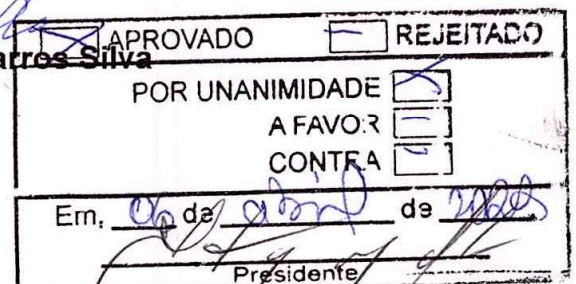 APROVADO REJEITADO
arros Silva
POR UNANIMIDADE
A FAVOR
CONTRA
Em, 06 de abril de
Presidente